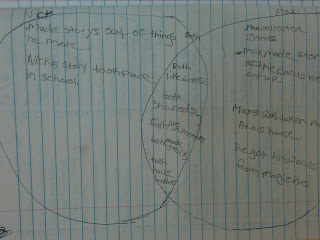 Nick
Made storys out of things
he made
Nick's story tookplace
in school.
Both
Both
like words
both
Shareds.
both
made
storys
both
have
brothers
Max
Max collected
words
max made stor
of the words he
cut up
Max's was taken pl
At his house
he got his words
from magjens